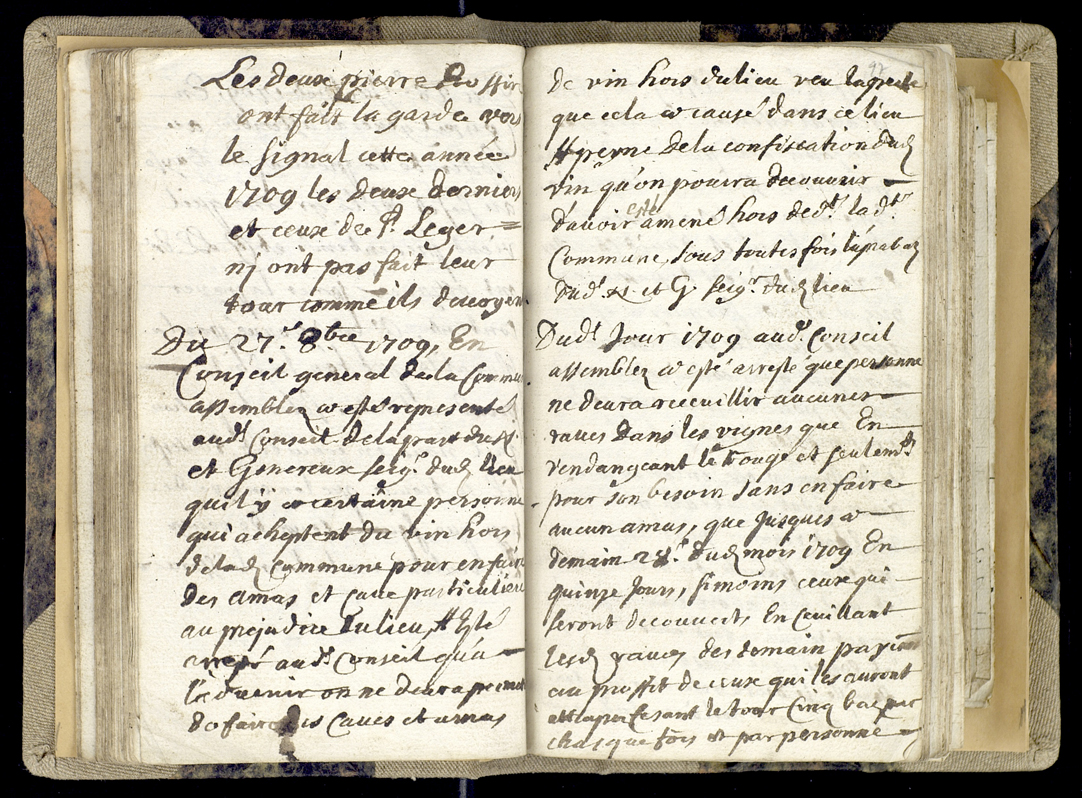 Les deux pierre
ont fait la garde
le signal cette année
1709 les deux dernier
et ceux de Pre Leger =
nj ont pas fait leur
tour comme ils devoyen
Du 27e 8bre 1709, En
Conseil general de la Commu
assemblez a esté representé
audt Conseil de la part du
et Genereux Seigr dud lieu
quil y a certaine personne
qui acheptent du vin hors
de lad Commune pour en faire
des amas et cave particuliere
au prejudice du lieu, Esté
audt Conseil qu'a
l'avenir on ne devra
de faire Caves et amas
97
de vin hors du lieu veu la
que cela a causé dans ce lieu
peyne de la confiscation dud
vin qu'on pourra decouvrir
d'avoir esté amené hors de la dte
Commune, sous toutes fois
Dudt et G. Seigr dud lieu
Dudt Jour 1709 audt Conseil
assemblez a esté arresté que personne
ne devra receuillir aucunes
raves Dans les vignes que En
vendangeant le rouge et seulemt
pour son besoin sans en faire
aucun amas, que Jusques a
demain 28e dud mois 1709 En
quinze Jours, ceux qui
seront decouvert, En Ceuillant
lesd raves des demain
au proffit de ceux qui les auront
attaper le tout Cinq baz par
chasque fois et par personne